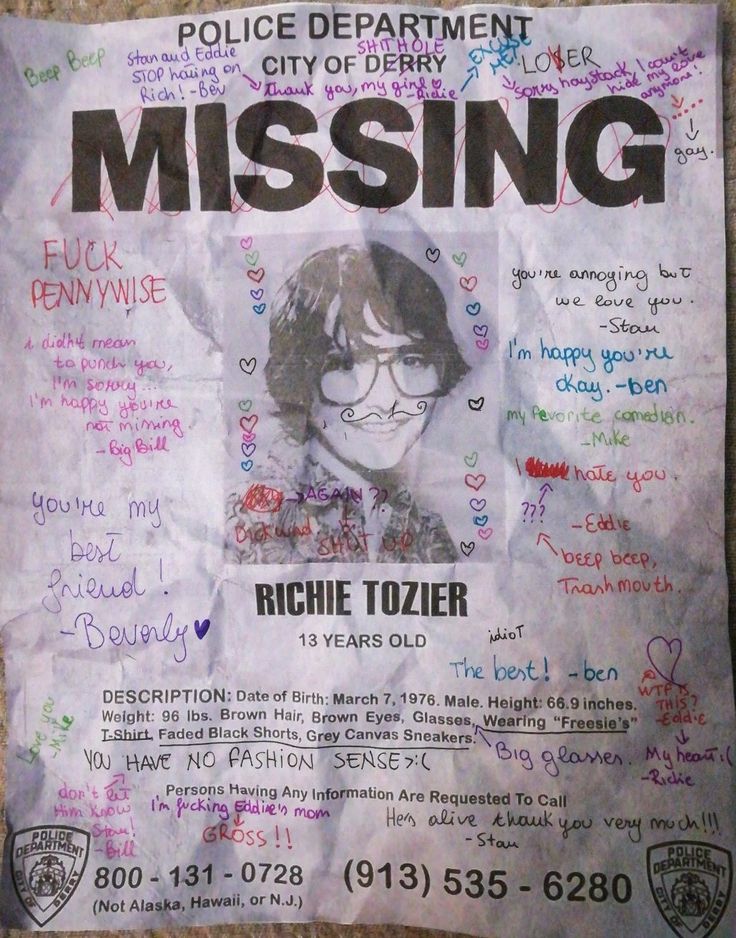 POLICE DEPARTMENT
SHITHOLE
CITY OF DERRY
Beep Beep
Stan and Eddie
STOP hating on
Rich! -Bev
Thank you, my girl ♡
-Richie
EXCUSE
ME!
LOVER
Sorry haystack I can't
hide my love
anymore!
gay.
MISSING
FUCK
PENNYWISE
i didn't mean
to punch you,
I'm sorry...
I'm happy you're
not missing.
-Big Bill
you're annoying but
we love you.
-Stan
I'm happy you're
okay. -ben
my favorite comedian.
-Mike
I hate you.
???
-Eddie
beep beep,
Trashmouth.
AGAIN??
Dickwad
SHUT UP
you're my
best
friend!
-Beverly ♥
RICHIE TOZIER
13 YEARS OLD
idiot
The best! -ben
WTF IS
THIS?
-Eddie
My heart :(
-Richie
Love you
-Mike
DESCRIPTION: Date of Birth: March 7, 1976. Male. Height: 66.9 inches.
Weight: 96 lbs. Brown Hair, Brown Eyes, Glasses, Wearing "Freesie's"
T-Shirt, Faded Black Shorts, Grey Canvas Sneakers.
Big glasses.
YOU HAVE NO FASHION SENSE>:(
don't let
Him know
Stan!
-Bill
Persons Having Any Information Are Requested To Call
I'm fucking Eddie's mom
GROSS!!
He's alive thank you very much!!!
-Stan
800 - 131 - 0728
(Not Alaska, Hawaii, or N.J.)
(913) 535 - 6280
POLICE
DEPARTMENT
CITY OF
DERRY
POLICE
DEPARTMENT
CITY OF
DERRY